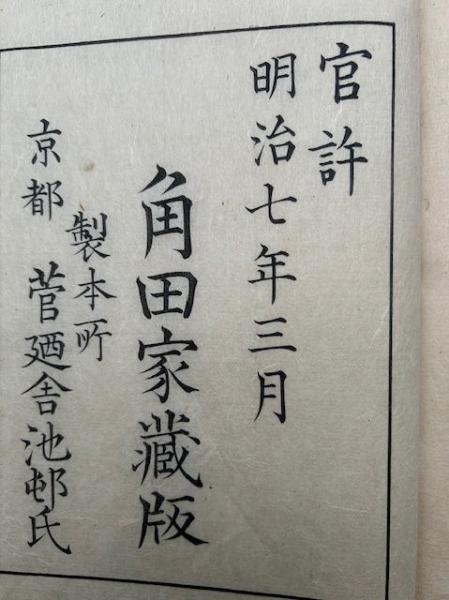 官許
明治七年三月
角田家藏版
製本所
京都 菅廼舎池邨氏